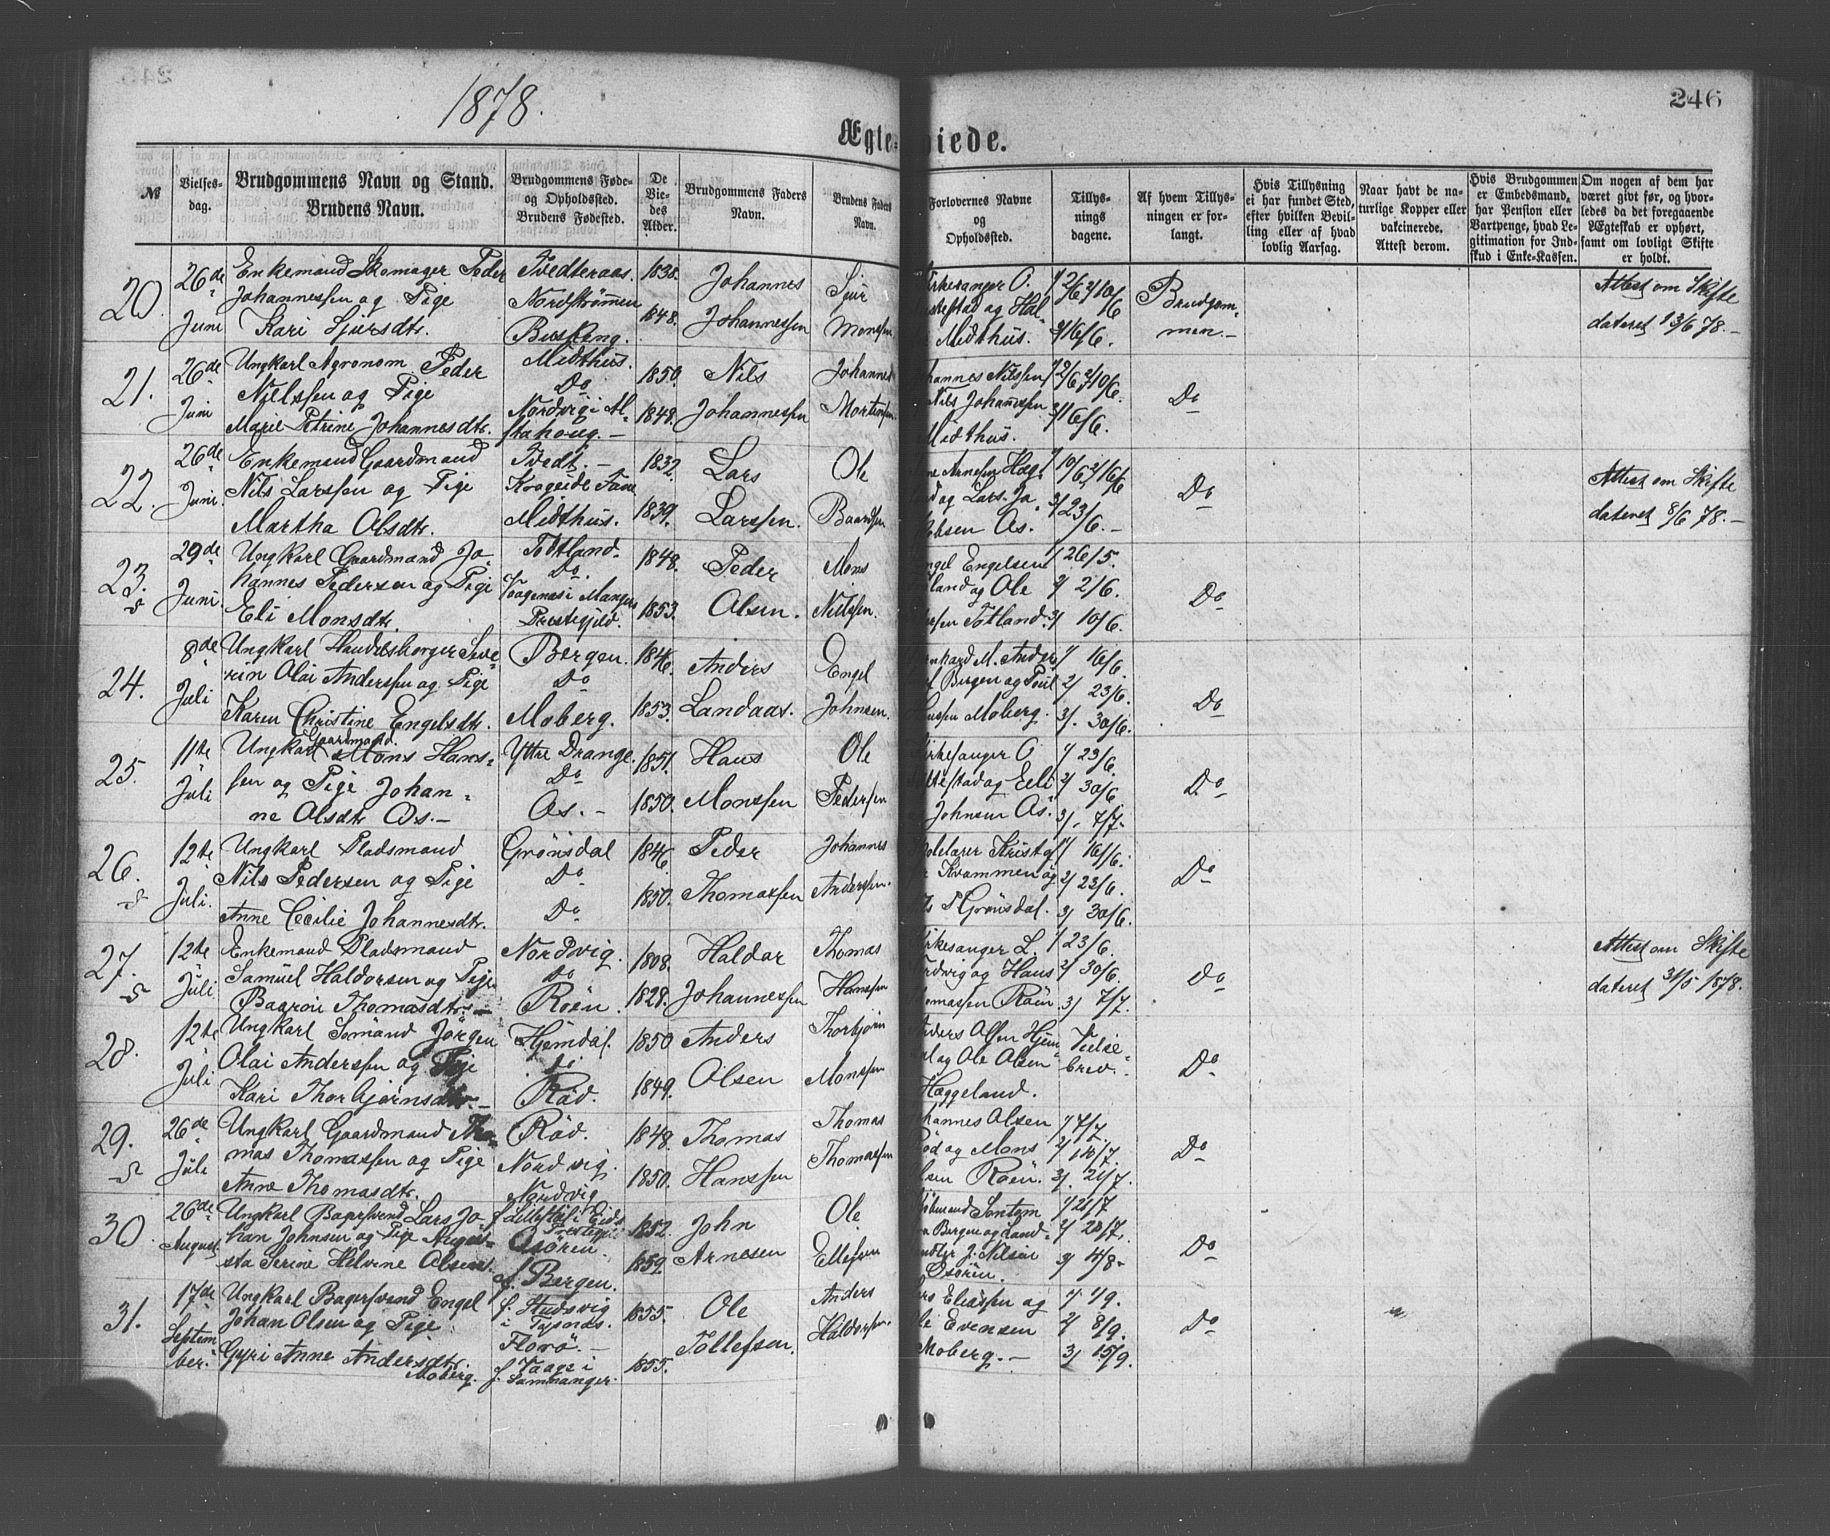 1878.
246
Ægteviede.
№
Vielses-
dag.
Brudgommens Navn og Stand.
Brudens Navn.
Brudgommens Føde-
og Opholdssted.
Brudens Fødested.
De
Vie-
des
Alder.
Brudgommens Faders
Navn.
Brudens Faders
Navn.
Forlovernes Navne
og
Opholdssted.
Tillys-
nings
dagene.
Af hvem Tillys-
ningen er for-
langt.
Hvis Tillysning
ei har fundet Sted,
efter hvilken Bevil-
ling eller af hvad
lovlig Aarsag.
Naar havt de na-
turlige Kopper eller
vakcinerede.
Attest derom.
Hvis Brudgommen
er Embedsmand,
har Pension eller
Vartpenge, hvad Le-
gitimation for Ind-
skud i Enke-Kassen.
Om nogen af dem har
været givt før, og hvor-
ledes da det foregaaende
Ægteskab er ophørt,
samt om lovligt Skifte
er holdt.
20.
26de
Juni
Enkemand Skomager Peder
Johannessen og Pige
Kari Sjursdtr.
Tvedteraas.
Nordstrømmen
1838.
1848.
Johannes
Johannessen
Sjur
Monssen
irkesanger O.
og Hal-
Midthus.
1/ 2/6 2/ 10/6
3/ 16/6.
Brudgom-
men.-
Attest om Skifte
dateret 23/6 78.-
21.
26de
Juni
Ungkarl Agronom Peder
Nielssen og Pige
Marie Petrine Johannesdtr.
Midthus.
Do
Nordvig i Al-
stahoug.-
1850.
1848.
Nils
Johannessen
Johannes
Mortensen
hannes Nilssen
Nils Johannessen
Midthus.
1/ 2/6 2/ 10/6.
3/ 16/6.
Do
22.
26de
Juni.
Enkemand Gaardmand
Nils Larssen og Pige
Martha Olsdtr.
Tvedt.-
Krogeide Fane
Midthus.
1832.
1839.
Lars
Larssen.
Ole
Baardsen
ne Arnesen Hæg-
d og Lars Ja-
obsen Os.
1/ 10/6. 2/ 16/6
3/ 23/6.-
Do
Attest om Skifte
dateret 8/6 78.-
23.
29de
Juni.
Ungkarl Gaardmand Jo-
hannes Pedersen og Pige
Eli Monsdtr.
Tøtland.
Do.
Vaagenes i Mangers
Prestegjeld.
1848.
1853.
Peder
Olsen.
Mons
Nilssen.
ngel Engelsen
land og Ole
ersen Tøtland.
1/ 26/5.
2/ 2/6.
3/ 10/6.
Do
24.
8de
Juli
Ungkarl Handelsborger Seve-
rin Olai Anderssen og Pige
Karen Christine Engelsdtr.
Bergen.
Do
Moberg.
1846.
1853.
Anders
Landaas.
Engel
Johnsen.
enhard M. Anders
af Bergen og Poul
Hanssen Moberg.
1/ 16/6.
2/ 23/6.
3/. 30/6.
Do
25.
11te
Juli
Gaardmand.
Ungkarl Mons Hans-
sen og Pige Johan-
ne Olsdtr Os.-
Yttre Drange.
Do
Os.-
1851.
1850.
Hans
Monssen
Ole
Pedersen
irkesanger O.
ttestad og Eeli
Johnsen Os.
1/ 23/6.
2/ 30/6
3/. 7/7.
Do
26.
12te
Juli.
Ungkarl Pladsmand
Nils Pedersen og Pige
Anne Cecilie Johannesdtr.
Grønsdal
Do
Do
1846.
1850.
Peder
Thomassen
Johannes
Anderssen.
olelærer Kristof
Kvammen og
Grønsdal.
1/ 16/6.
2/ 23/6.
3/ 30/6.
Do
27.
12te
Juli
Enkemand Pladsmand
Samuel Haldorsen og Pige
Baaroni Thomasdtr.-
Nordvig.
Do
Røen.
1808.
1828.
Haldor
Johannessen
Thomas
Hanssen
irkesanger L.
ordvig og Hans
homassen Røen
1/ 23/6.
2/ 30/6.
3/ 7/7.
Do
Attest om Skifte
dateret 31/5 1878.
28.
12te
Juli
Ungkarl Sømand Jørgen
Olai Anderssen og Pige
Kari Thorbjørnsdtr.-
Hjemdal.
do
Rød.
1850
1849.
Anders
Olsen
Thorbjørn
Monssen
nders Olsen Hjem-
al og Ole Olsen
Hæggeland.
Vielse-
brev.
Do
29.
26de
Juli
Ungkarl Gaardmand Tho-
mas Thomassen og Pige
Anne Thomasdtr.
Rød.
Nordvig.
Nordvig
1848.
1850.
Thomas
Hanssen
Thomas
Thomassen
ohannes Olsen
Rød og Mons
lsen Røen.
1/ 7/7.
2/ 14/7.
3/. 21/7.
Do
30.
26de
August
Ungkarl Bagersvend Lars Jo-
han Johnsen og Pige Augu-
sta Serine Helvine Olsen.
f. Lillestøl i Eids
Prestegj.
Osøren.
af Bergen.
1852.
1859.
John
Arnesen
Ole
Ellefsen
Bergen og Land-
J. Nilsen
Osøren.
1/ 21/7
2/ 28/7.
3/ 4/8.
Do
31.
17de
Septem
ber.
Ungkarl Bagersvend Engel
Johan Olsen og Pige
Gyri Anne Andersdtr.
Moberg.
f. Hudsvig
i Tysnæs.
Florø.-
f. Vaage i
Samnanger.
1855.
1855.
Ole
Tollefsen.
Anders
Haldorsen.
ers Eliassen og
le Evensen
Moberg.-
1/ 1/9.
2/ 8/9.
3/ 15/9.
Do